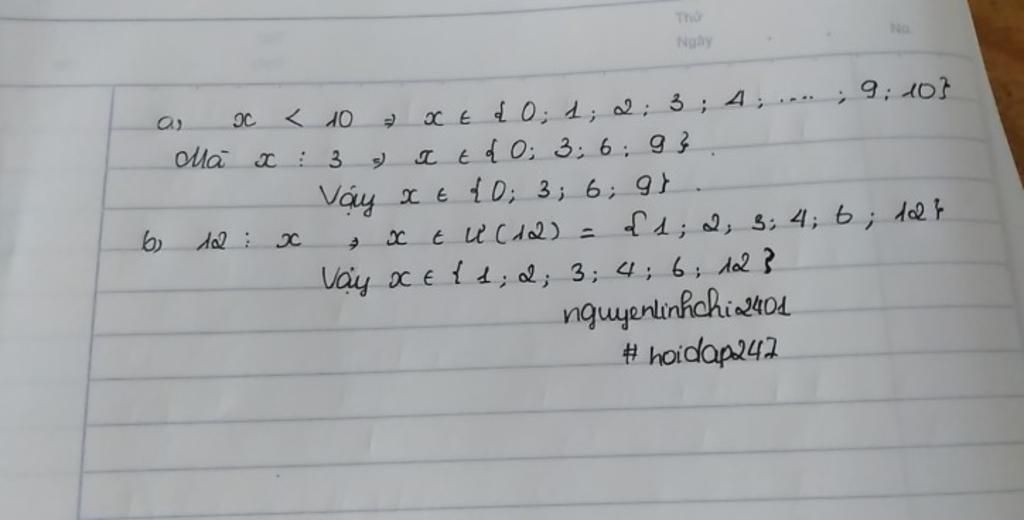 Thứ
Ngày
No.
a, x < 10 ⇒ x ∈ { 0; 1; 2; 3; 4; ....; 9; 10}
Mà x ⋮ 3 ⇒ x ∈ { 0; 3; 6; 9 }.
Vậy x ∈ { 0; 3; 6; 9}.
b, 12 ⋮ x ⇒ x ∈ Ư(12) = { 1; 2; 3; 4; 6; 12}
Vậy x ∈ { 1; 2; 3; 4; 6; 12 }
nguyenlinhchi2401
# hoidap247